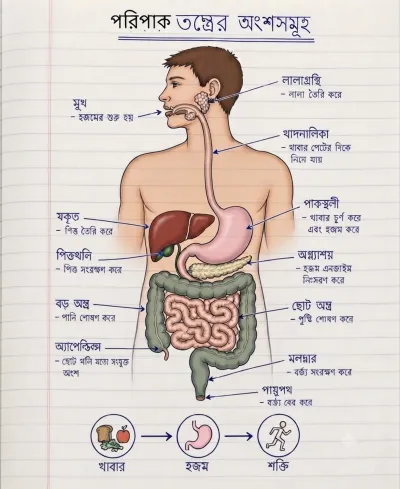 পরিপাক তন্ত্রের অংশসমূহ
লালাগ্রন্থি
- লালা তৈরি করে
মুখ
- হজমের শুরু হয়
খাদনালিকা
- খাবার পেটের দিকে
নিয়ে যায়
পাকস্থলী
- খাবার চূর্ণ করে
এবং হজম করে
যকৃত
- পিত্ত তৈরি করে
পিত্তথলি
- পিত্ত সংরক্ষণ করে
অগ্ন্যাশয়
- হজম এনজাইম
নিঃসরণ করে
বড় অন্ত্র
- পানি শোষণ করে
ছোট অন্ত্র
- পুষ্টি শোষণ করে
অ্যাপেন্ডিক্স
- ছোট থলি মতো সংযুক্ত
অংশ
মলদ্বার
- বর্জ্য সংরক্ষণ করে
পায়ুপথ
- বর্জ্য বের করে
খাবার
হজম
শক্তি